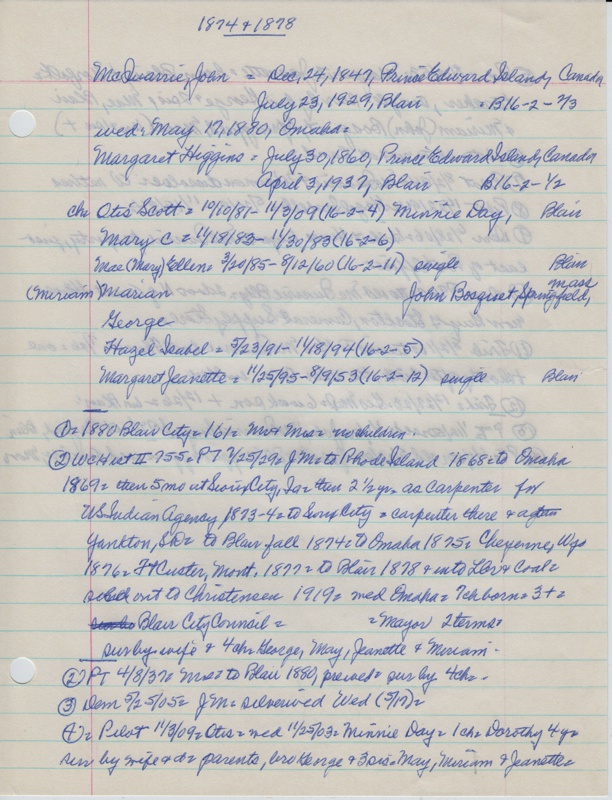 1874 + 1878
McQuarrie, John = Dec, 24, 1847, Prince Edward Island, Canada
July 23, 1929, Blair = B16-2-7/3
wed: May 17, 1880, Omaha=
Margaret Higgins = July 30, 1860, Prince Edward Island, Canada
April 3, 1937, Blair B16-2-1/2
ch: Otis Scott = 10/10/81- 11/3/09 (16-2-4) Minnie Day, Blair
Mary C = 11/18/83- 11/30/83 (16-2-6)
Mae (Mary) Ellen = 3/20/85- 8/12/60 (16-2-11) single Blair
(Miriam) Marian John Bosquet, Springfield, Mass
George
Hazel Isabel = 5/23/91- 11/18/94 (16-2-5)
Margaret Jeanette = 11/25/95- 8/9/53 (16-2-12) single Blair
① = 1880 Blair City = 161 = Mr + Mrs = no children.
② WCHist II 755 = PT 7/25/29 = JM = to Rhode Island 1868 = to Omaha
1869 = then 5 mo at Sioux City, Ia = then 2 1/2 yr as carpenter for
US Indian Agency 1873-4 = to Sioux City = carpenter there &
Yankton, SD = to Blair fall 1874 = to Omaha 1875 = Cheyenne, Wyo
1876 = Ft Custer, Mont. 1877 = to Blair 1878 + into Lbr + Coal =
sold out to Christensen 1919 = wed Omaha = 7 ch born = 3 + =
Blair City Council = = Mayor 2 terms =
sur by wife & 4 ch = George, May, Jeanette & Miriam.
② PT 4/8/37 = Mrs = to Blair 1880, = sur by 4 ch = .
③ Dem 5/25/05 = JM = silver wed Wed (5/17) =
④ = Pilot 11/3/09 = Otis = wed 11/25/03 = Minnie Day = 1 ch = Dorothy 4 yr =
sur by wife & d = parents, bro George & 3 sis = May, Miriam & Jeanette =